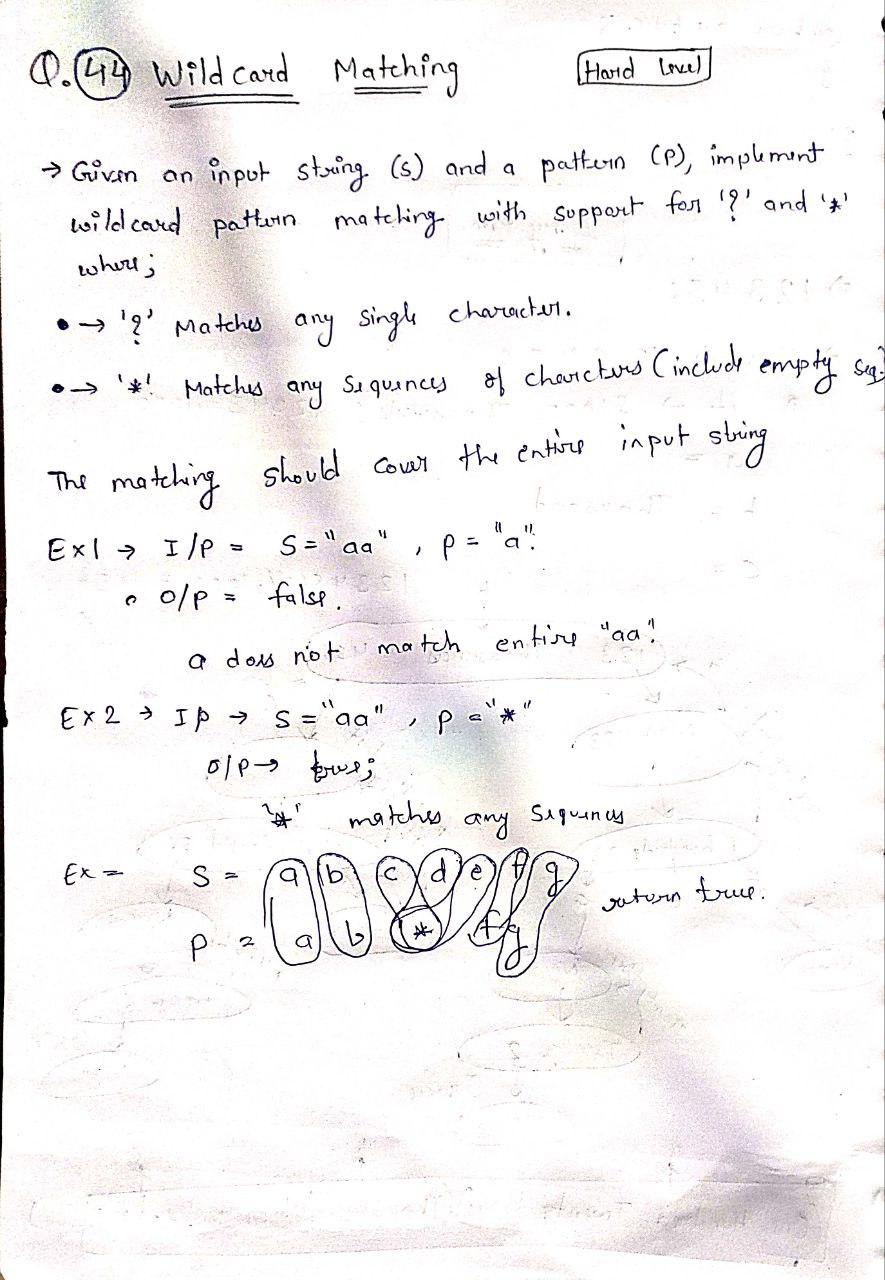 Q.44 Wild card Matching Hard Level
→ Given an input string (s) and a pattern (P), implement
wild card pattern matching with support for '?' and '*'
where;
• → '?' Matches any single character.
• → '*' Matches any sequences of charcters (include empty seq.)
The matching should cover the entire input string
Ex1 → I/P = S = "aa" , P = "a".
• O/P = false.
a does not match entire "aa".
Ex2 → Ip → S = "aa" , P = "*"
O/P → true;
'*' matches any sequences
Ex = S = a b c d e f g return true.
P = a b * f g